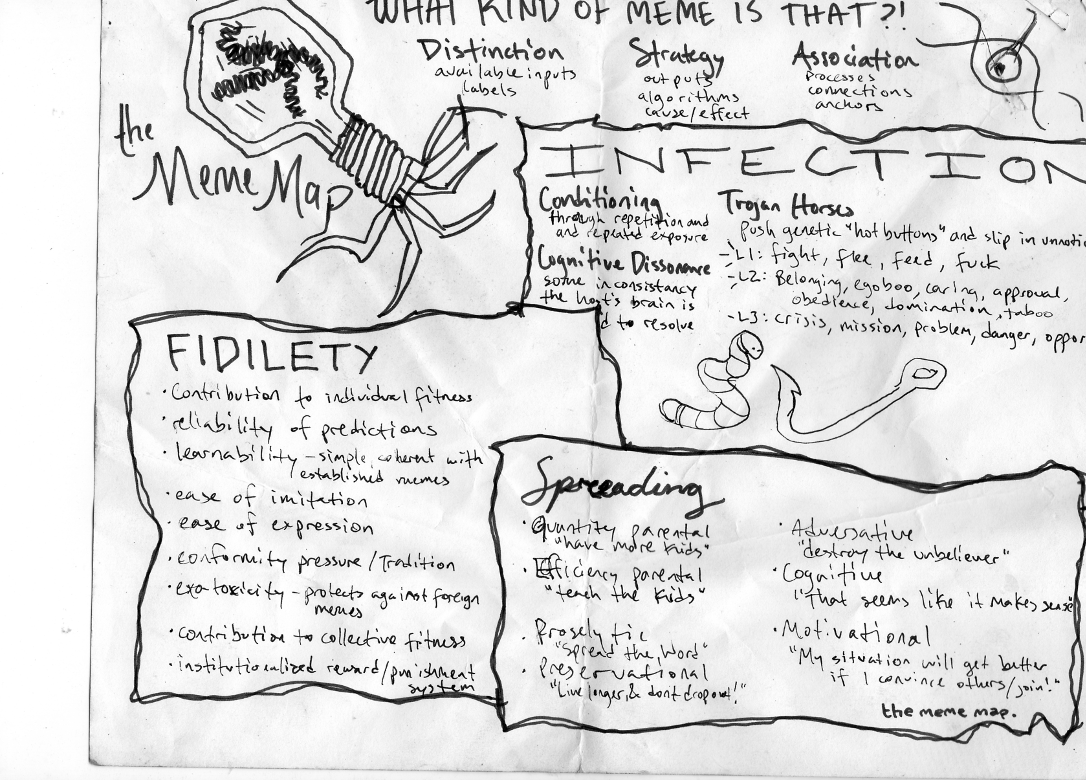 WHAT KIND OF MEME IS THAT?!
Distinction
available inputs
labels
Strategy
outputs
algorithms
cause/effect
Association
processes
connections
anchors
the
Meme Map
INFECTION
Conditioning
through repetition and
and repeated exposure
Cognitive Dissonance
some inconsistancy
the host's brain is
to resolve
Trojan Horses
push genetic "hot buttons" and slip in
-L1: fight, flee, feed, fuck
-L2: Belonging, egoboo, caring, approval,
obedience, domination, taboo
-L3: crisis, mission, problem, danger,
FIDILETY
• Contribution to individual fitness
• reliability of predictions
• learnability - simple, coherent with
established memes
• ease of imitation
• ease of expression
• conformity pressure/Tradition
• exo-toxicity - protects against foreign
memes
• contribution to collective fitness
• institutionalized reward/punishment
system
Spreeading
• Quantity parental
"have more kids"
• Efficiency parental
"teach the kids"
• Proselytic
"Spread the Word"
• Preservational
"Live longer, & don't drop out!"
• Adversative
"destroy the unbeliever"
• Cognitive
"That seems like it makes sense"
• Motivational
"My situation will get better
if I convince others/join!"
the meme map.